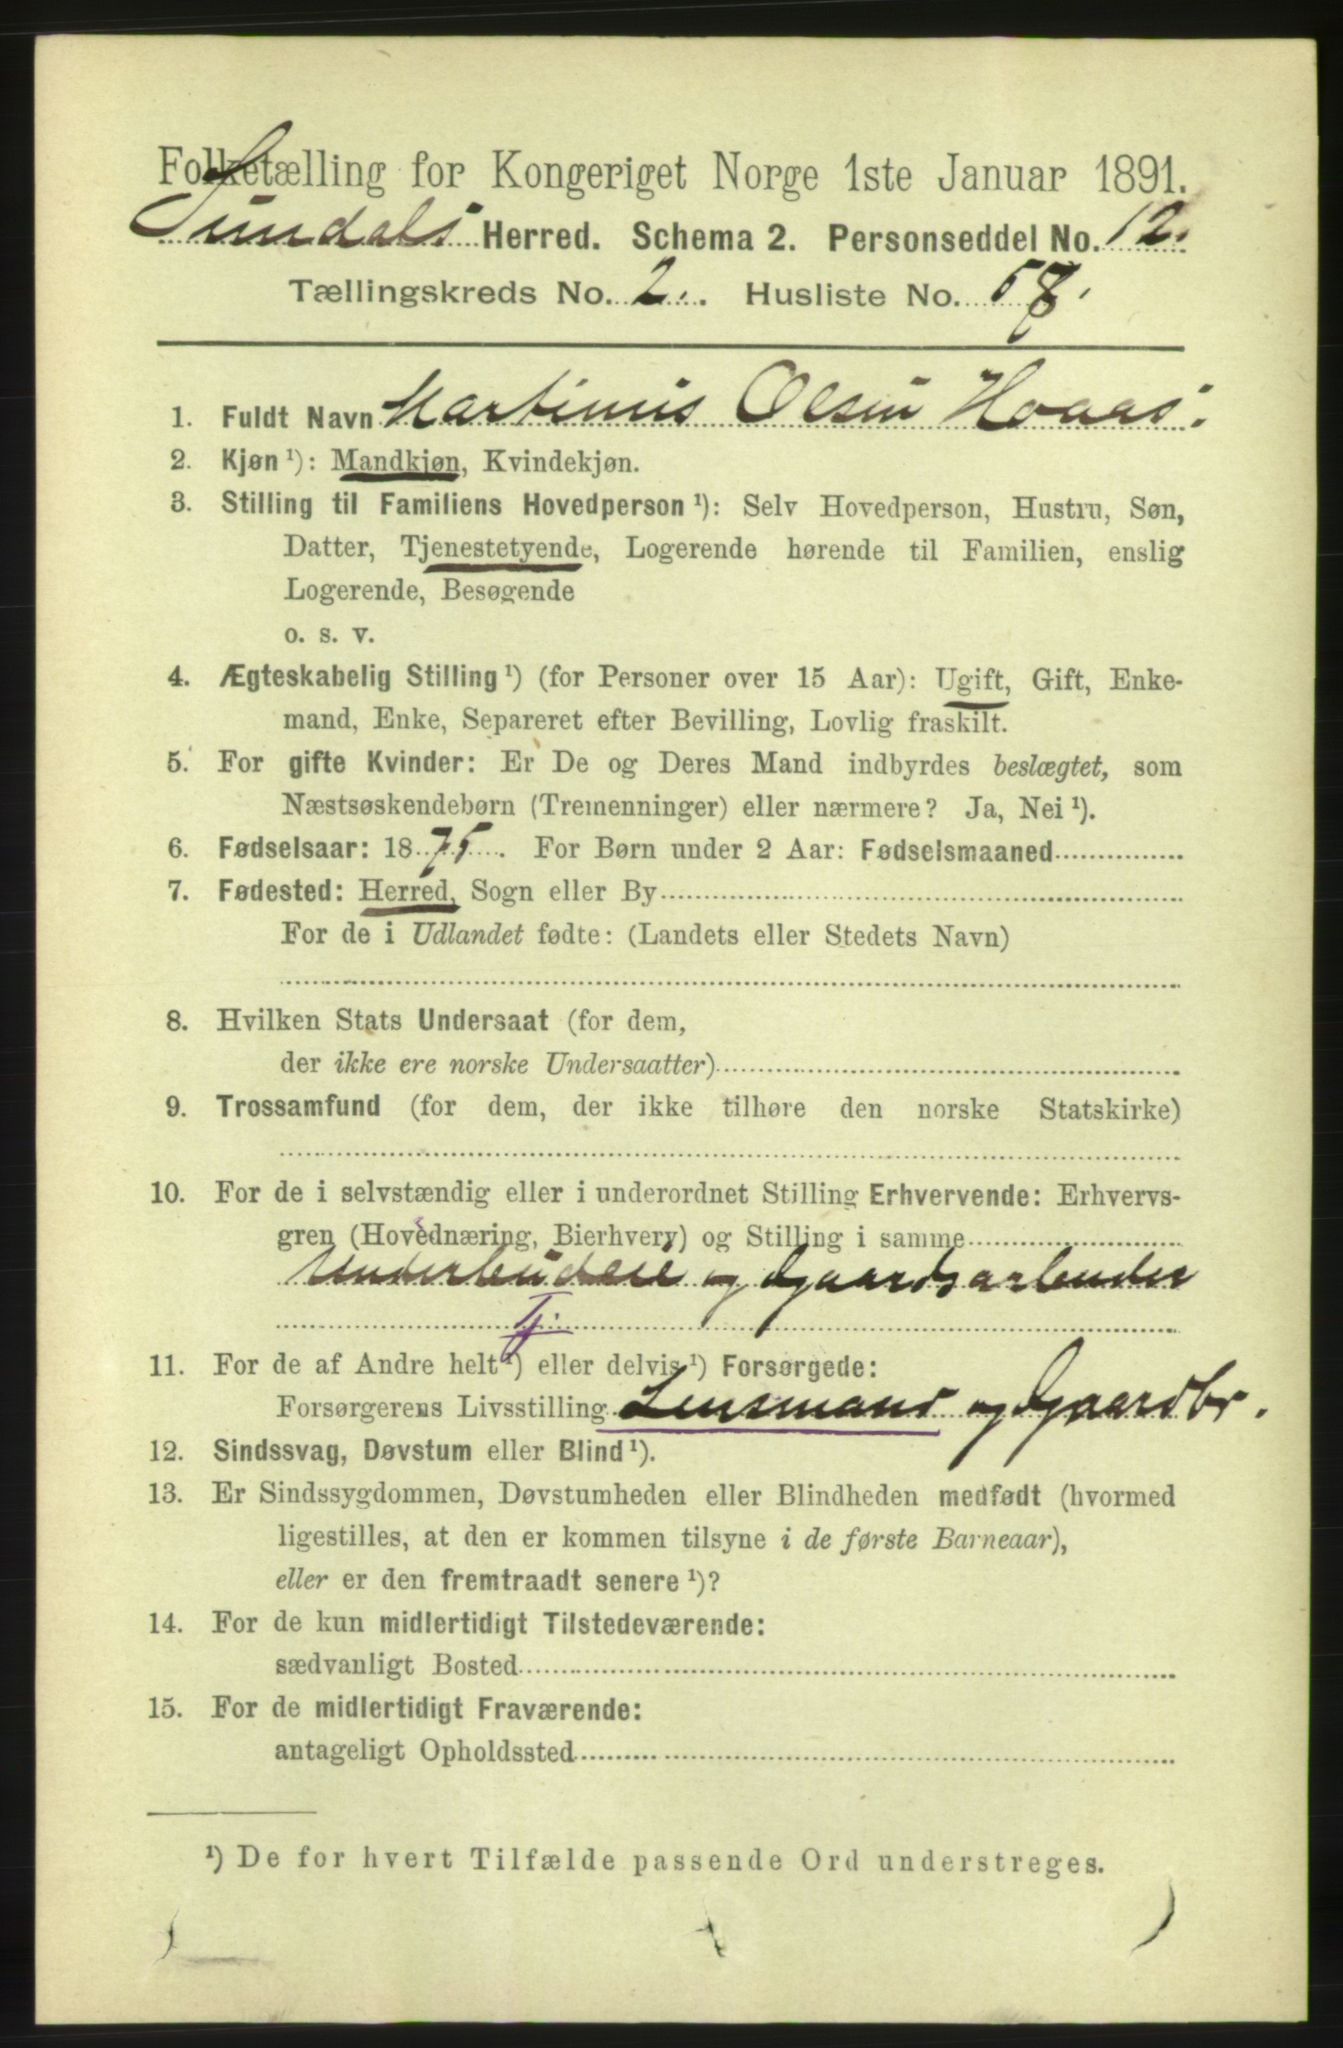 Folketælling for Kongeriget Norge 1ste Januar 1891.
Sundals Herred. Schema 2. Personseddel No. 12.
Tællingskreds No. 2. Husliste No. 58.
1. Fuldt Navn Martinus Olsen Hoaas.
2. Kjøn ¹): Mandkjøn, Kvindekjøn.
3. Stilling til Familiens Hovedperson ¹): Selv Hovedperson, Hustru, Søn,
Datter, Tjenestetyende, Logerende hørende til Familien, enslig
Logerende, Besøgende
o. s. v.
4. Ægteskabelig Stilling ¹) (for Personer over 15 Aar): Ugift, Gift, Enke-
mand, Enke, Separeret efter Bevilling, Lovlig fraskilt.
5. For gifte Kvinder: Er De og Deres Mand indbyrdes beslægtet, som
Næstsøskendebørn (Tremenninger) eller nærmere? Ja, Nei ¹).
6. Fødselsaar: 1875. For Børn under 2 Aar: Fødselsmaaned
7. Fødested: Herred, Sogn eller By
For de i Udlandet fødte: (Landets eller Stedets Navn)
8. Hvilken Stats Undersaat (for dem,
der ikke ere norske Undersaatter)
9. Trossamfund (for dem, der ikke tilhøre den norske Statskirke)
10. For de i selvstændig eller i underordnet Stilling Erhvervende: Erhvervs-
gren (Hovednæring, Bierhverv) og Stilling i samme
og Gaardsarbeider
Tj.
11. For de af Andre helt ¹) eller delvis ¹) Forsørgede:
Forsørgerens Livsstilling Lensmand og Gaardbr.
12. Sindssvag, Døvstum eller Blind ¹).
13. Er Sindssygdommen, Døvstumheden eller Blindheden medfødt (hvormed
ligestilles, at den er kommen tilsyne i de første Barneaar),
eller er den fremtraadt senere ¹)?
14. For de kun midlertidigt Tilstedeværende:
sædvanligt Bosted
15. For de midlertidigt Fraværende:
antageligt Opholdssted
¹) De for hvert Tilfælde passende Ord understreges.